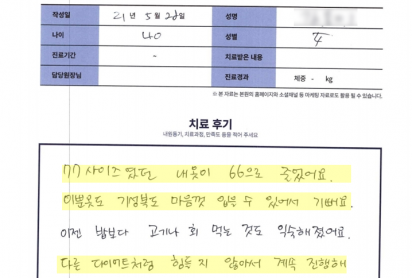 작성일 21년 5월 28일 성명
나이 40 성별 우
진료기간 - 치료받은 내용
담당원장님 진료경과 체중 - kg
※ 본 자료는 본원의 홈페이지와 소셜채널 등 마케팅 자료로도 활용 될 수 있습니다.
치료 후기
내원동기, 치료과정, 만족도 등을 적어 주세요
77사이즈였던 내옷이 66으로 줄었어요.
이쁜옷도 기성복도 마음껏 입을 수 있어서 기뻐요.
이젠 밥보다 고기나 회 먹는 것도 익숙해졌어요.
다른 다이어트처럼 힘들지 않아서 계속 진행해